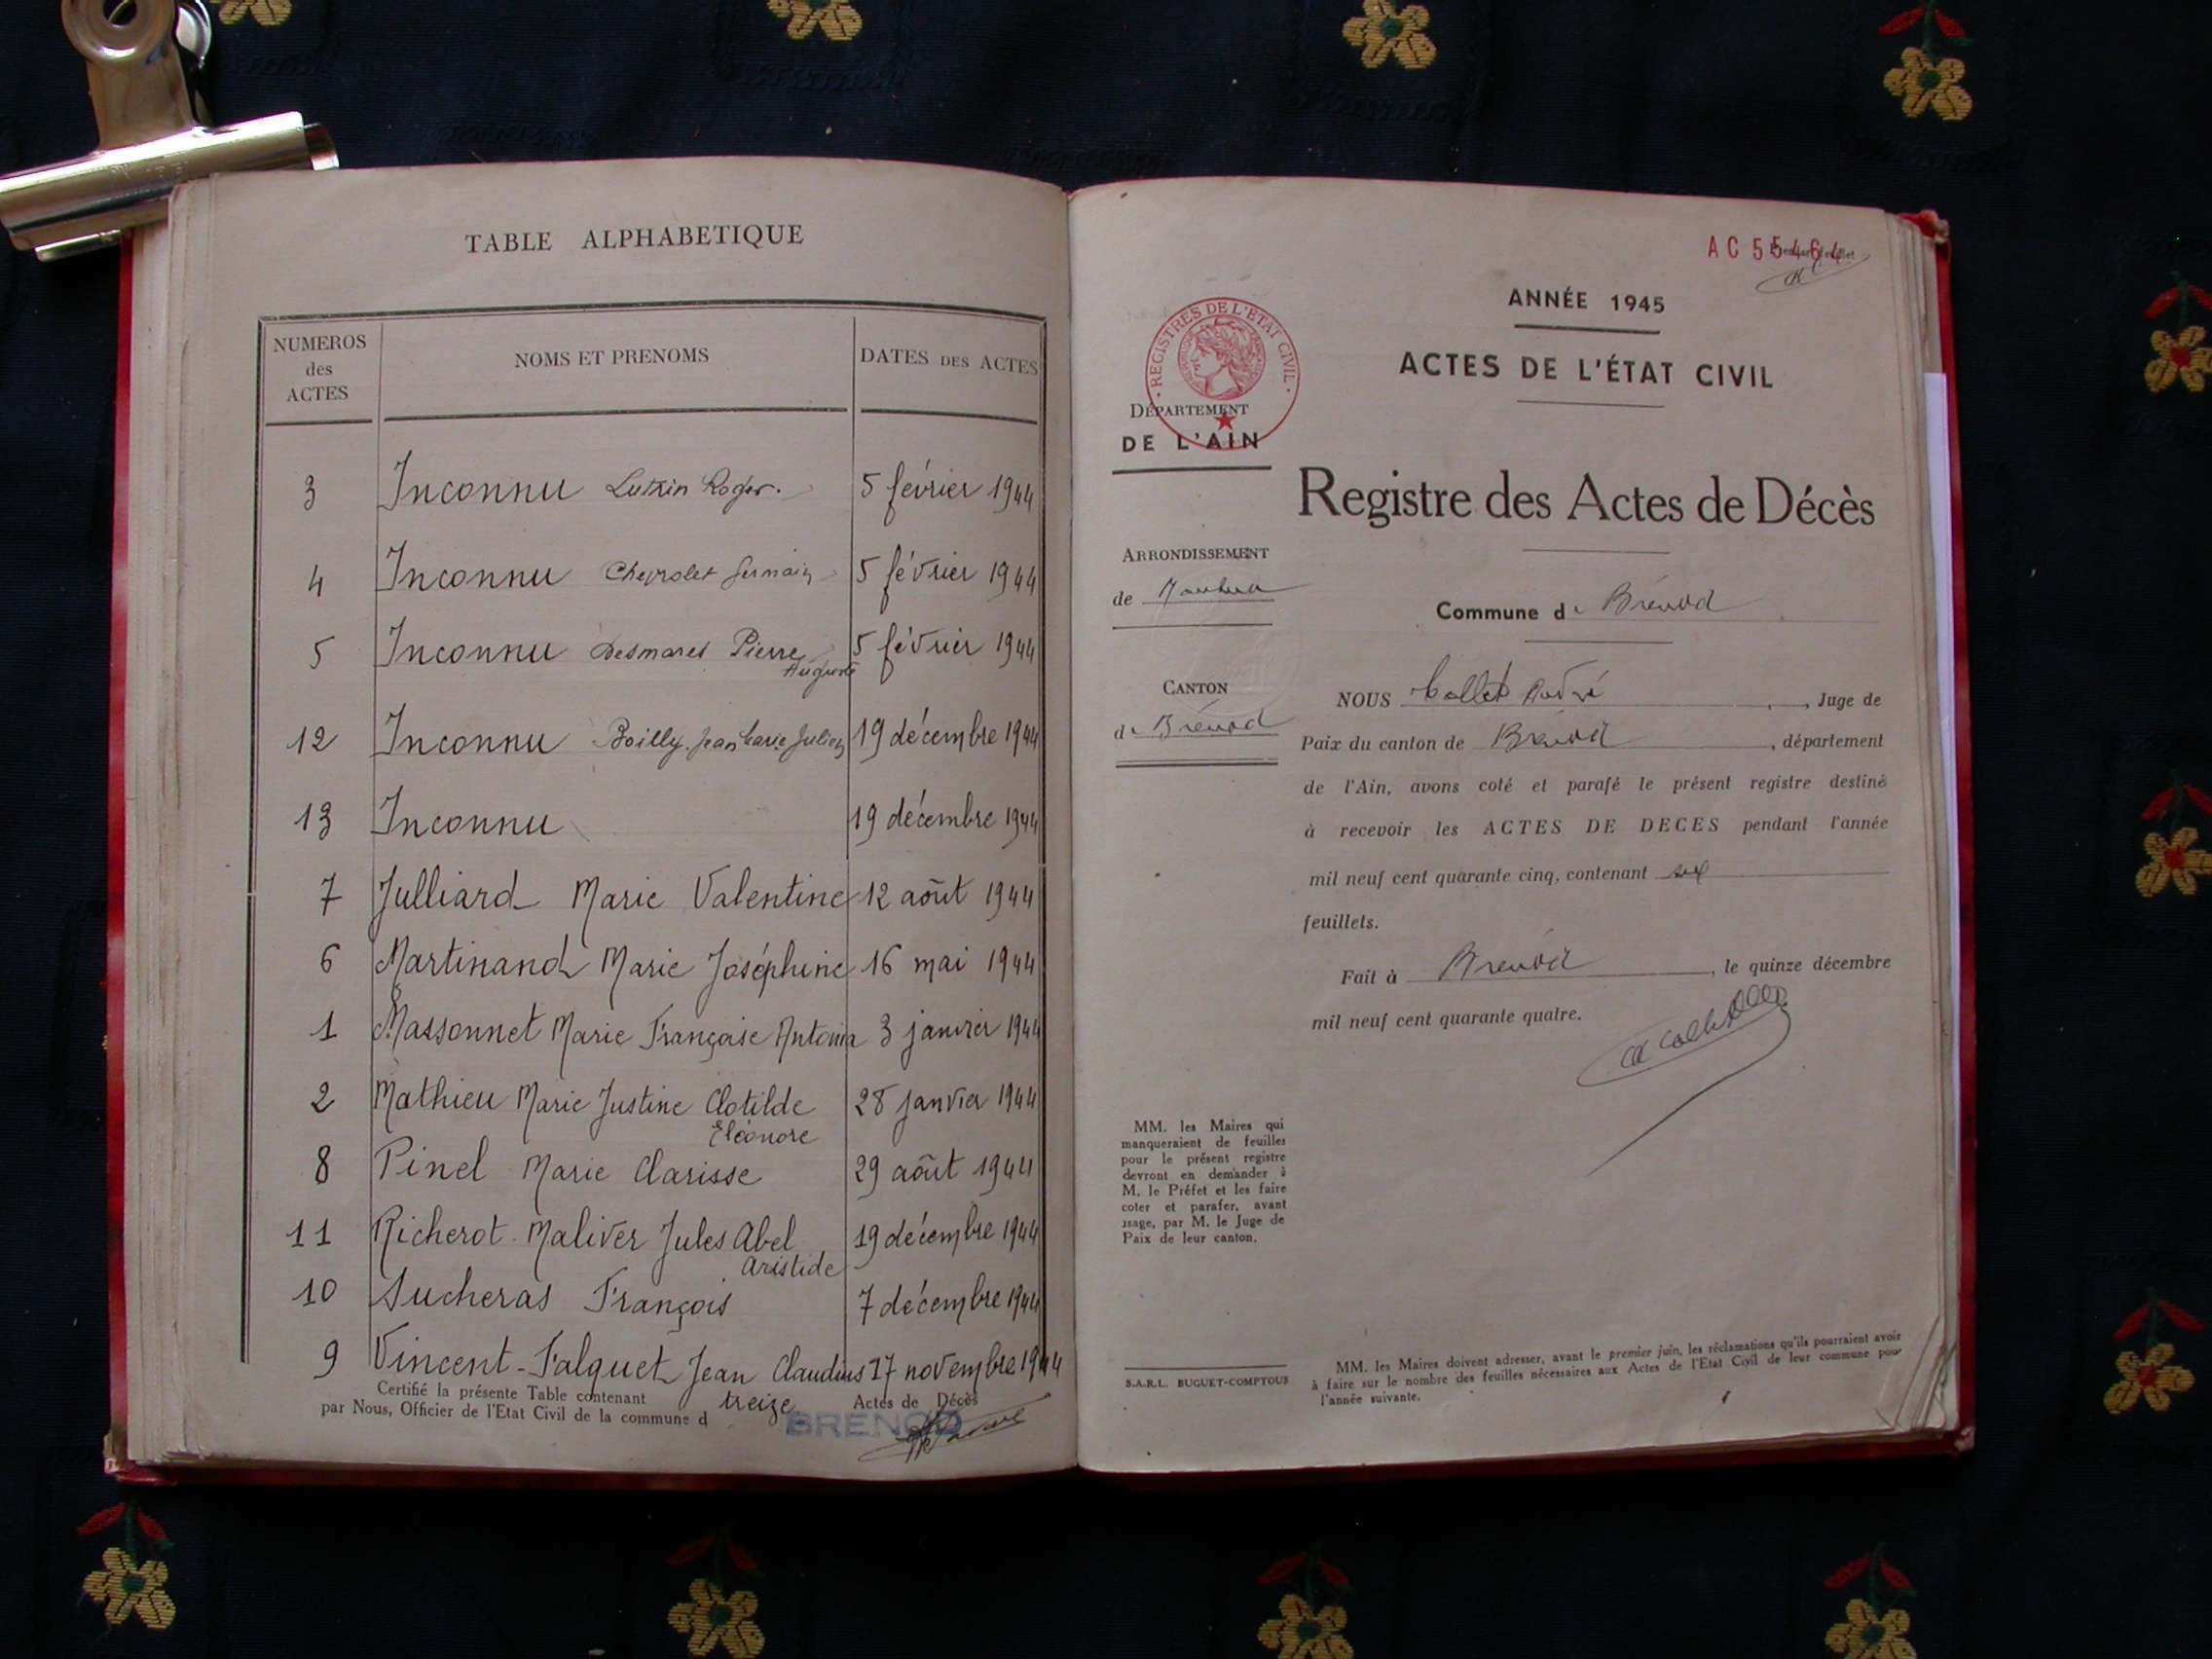 TABLE ALPHABETIQUE
NUMEROS
des
ACTES
NOMS ET PRENOMS
DATES DES ACTES
3 Inconnu Lutrin Roger. 5 février 1944
4 Inconnu Chevrolet Germain 5 février 1944
5 Inconnu Desmares Pierre 5 février 1944
Auguste
12 Inconnu Boilly Jean Marie Julien 19 décembre 1944
13 Inconnu 19 décembre 1944
7 Julliard Marie Valentine 12 août 1944
6 Martinand Marie Joséphine 16 mai 1944
1 Massonnet Marie Françoise Antonia 3 janvier 1944
2 Mathieu Marie Justine Clotilde 28 janvier 1944
Eléonore
8 Pinel Marie Clarisse 29 août 1944
11 Richerot-Maliver Jules Abel 19 décembre 1944
Aristide
10 Sucheras François 7 décembre 1944
9 Vincent-Falquet Jean Claudius 17 novembre 1944
Certifié la présente Table contenant treize Actes de Décès
par Nous, Officier de l'Etat Civil de la commune d BRENOD
AC 55464
REGISTRES DE L'ÉTAT CIVIL
ANNÉE 1945
ACTES DE L'ÉTAT CIVIL
DÉPARTEMENT
DE L'AIN
Registre des Actes de Décès
ARRONDISSEMENT
de Nantua
Commune de Brénod
CANTON
de Brénod
NOUS Collet André, Juge de
Paix du canton de Brénod, département
de l'Ain, avons coté et parafé le présent registre destiné
à recevoir les ACTES DE DECES pendant l'année
mil neuf cent quarante cinq, contenant six
feuillets.
Fait à Brénod, le quinze décembre
mil neuf cent quarante quatre.
MM. les Maires qui
manqueraient de feuilles
pour le présent registre
devront en demander à
M. le Préfet et les faire
coter et parafer, avant
usage, par M. le Juge de
Paix de leur canton.
S.A.R.L. BUGUET-COMPTOUR
MM. les Maires doivent adresser, avant le premier juin, les réclamations qu'ils pourraient avoir
à faire sur le nombre des feuilles nécessaires aux Actes de l'Etat Civil de leur commune pour
l'année suivante.